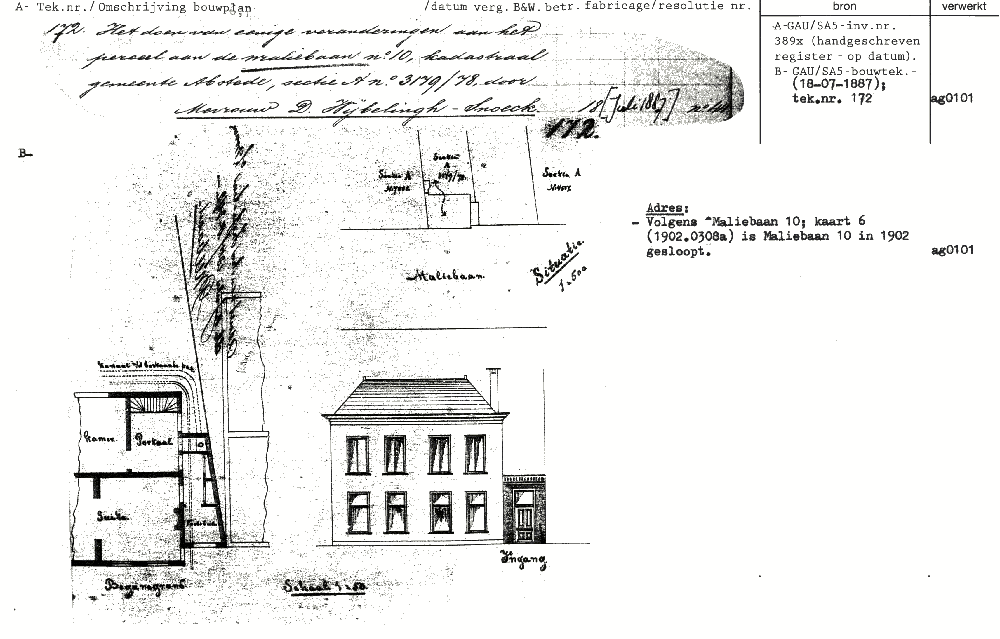 A- Tek.nr./Omschrijving bouwplan. /datum verg. B&W.betr. fabricage/resolutie nr.
bron
verwerkt
172. Het doen van eenige veranderingen aan het
perceel aan de maliebaan no. 10, kadastraal
gemeente Abstede, sectie A no. 3179/78. door
Mevrouw D. Hijbelingh - Snoeck. 18 [Juli 1887]
172.
A-GAU/SA5-inv.nr.
389x (handgeschreven
register - op datum).
B- GAU/SA5-bouwtek.-
(18-07-1887);
tek.nr. 172
ag0101
B-
Sectie
A
3179/78.
Sectie A
Sectie A
Maliebaan.
Situatie
1-500
Adres:
- Volgens "Maliebaan 10; kaart 6
(1902.0308a) is Maliebaan 10 in 1902
gesloopt.
ag0101
Kamer.
Portaal
Suite
Begane grond
Schaal 1-50
Ingang